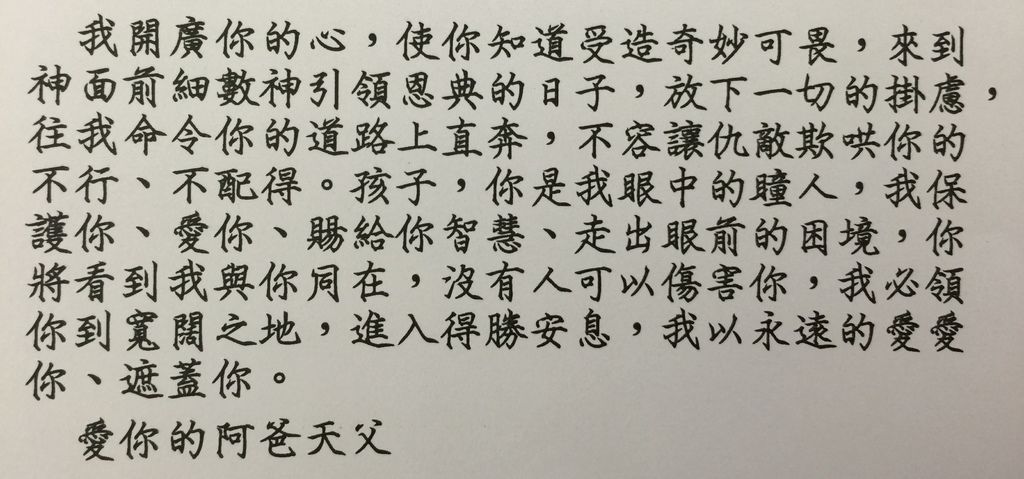 我開廣你的心，使你知道受造奇妙可畏，來到
神面前細數神引領恩典的日子，放下一切的掛慮，
往我命令你的道路上直奔，不容讓仇敵欺哄你的
不行、不配得。孩子，你是我眼中的瞳人，我保
護你、愛你、賜給你智慧、走出眼前的困境，你
將看到我與你同在，沒有人可以傷害你，我必領
你到寬闊之地，進入得勝安息，我以永遠的愛愛
你、遮蓋你。
愛你的阿爸天父